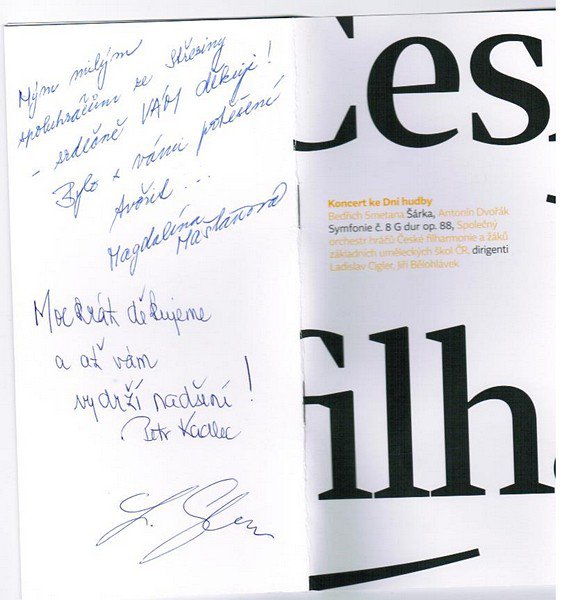 Mým milým
spoluhráčům ze Střežiny
- srdečně VÁM děkuji!
Bylo s vámi potěšení
tvořit...
Magdalína
Mašlaňová
Mockrát děkujeme
a ať vám
vydrží nadšení!
Petr Kadlec
Čes
Koncert ke Dni hudby
Bedřich Smetana Šárka, Antonín Dvořák
Symfonie č. 8 G dur op. 88, Společný
orchestr hráčů České filharmonie a žáků
základních uměleckých škol ČR, dirigenti
Ladislav Cigler, Jiří Bělohlávek
filh